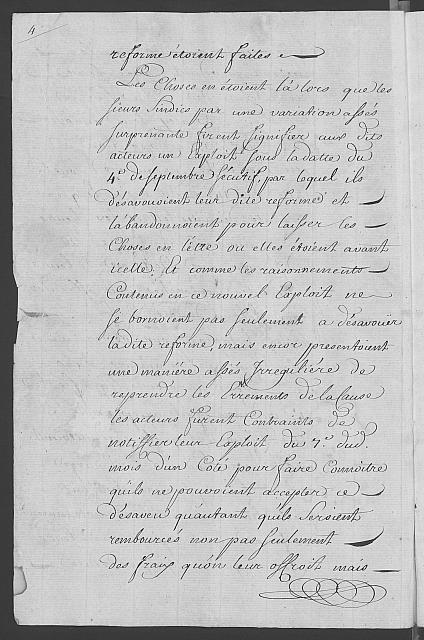 4
reforme étoient faites
Les Choses en étoient là lors que les
sieurs Sindics par une variation assés
surprenante firent signifier aux dits
acteurs un Exploit sous la datte du
4e. de septembre sécutif, par lequel ils
désavouoient leur dite reforme et
l'abandonnoient pour laisser les
Choses en l'être ou elles étoient avant
icelle, Et comme les raisonnements
Contenus en ce nouvel Exploit ne
se bornoient pas seulement a désavoüer
ladite reforme, mais encor presentoient
une maniére assés Irreguliére de
reprendre les Errements de la Cause
les acteurs furent Contraints de
notiffier leur Exploit du 7e. dud.
mois d'un Coté pour faire Connoitre
qu'ils ne pouvoient accepter ce
désaveu qu'autant qu'ils seroient
rembourcés non pas seulement
des fraix qu'on leur offroit mais